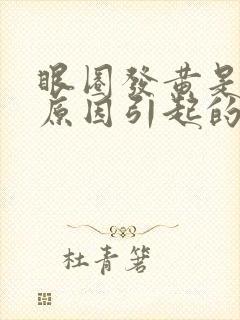 眼圈發黃是
原因引起的
杜青箬